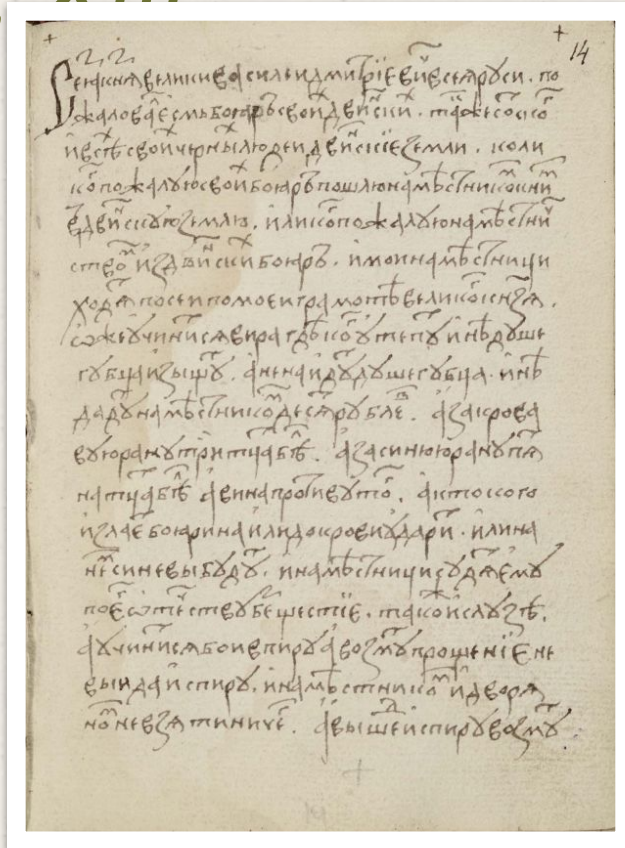 14
Се ꙗ кнꙗ великиі васильи дмитрїевⷱ҇ всеꙗ руси. по
жаловаⷧ҇ есмь боꙗръ своиⷯ двиⷩ҇скиⷯ. таⷤ҇же соⷰкоⷢ
и всѣⷯ своиⷯ черныⷯ людеи двиⷩ҇скїе земли. коли
коⷢ пожалую своиⷯ боꙗръ пошлю намѣстникоⷨ к ниⷨ
в двиⷩ҇скую землю. или коⷢ пожалую намѣстниⷱ
ствоⷨ из двиⷩ҇скиⷯ боꙗръ. и мои намѣстници
ходꙗⷮ по сеи по моеи грамотѣ великоⷢ кнꙗзꙗ.
ѡже учиниⷮсꙗ вира гдѣ коⷢ утепуⷮ инѣ душе
губца изыщуⷮ. а не наидуⷮ душегубца. инѣ
дадуⷮ намѣстникоⷨ десꙗⷮ рублеⷡ. а за крова
вую рану триⷣтцаⷮ бѣⷧ. а за синюю рану пꙗⷮ
натцаⷮ бѣⷧ а вина противу тоⷢ. а кто кого
излаеⷮ боꙗрина или до крови удариⷮ. или на
неⷨ синевы будуⷮ. и намѣстници судꙗⷮ ему
по еⷢ ѡтеⷱ҇ству бещестїе. такоⷤ и слузѣ.
а учиниⷮсꙗ бои в пиру а возмуⷮ прощенїе не
выидꙗ и с пиру. и намѣстникоⷨ и дворꙗ
ноⷨ не взꙗти ничеⷢ. а вышеⷣ и с пиру возмуⷮ